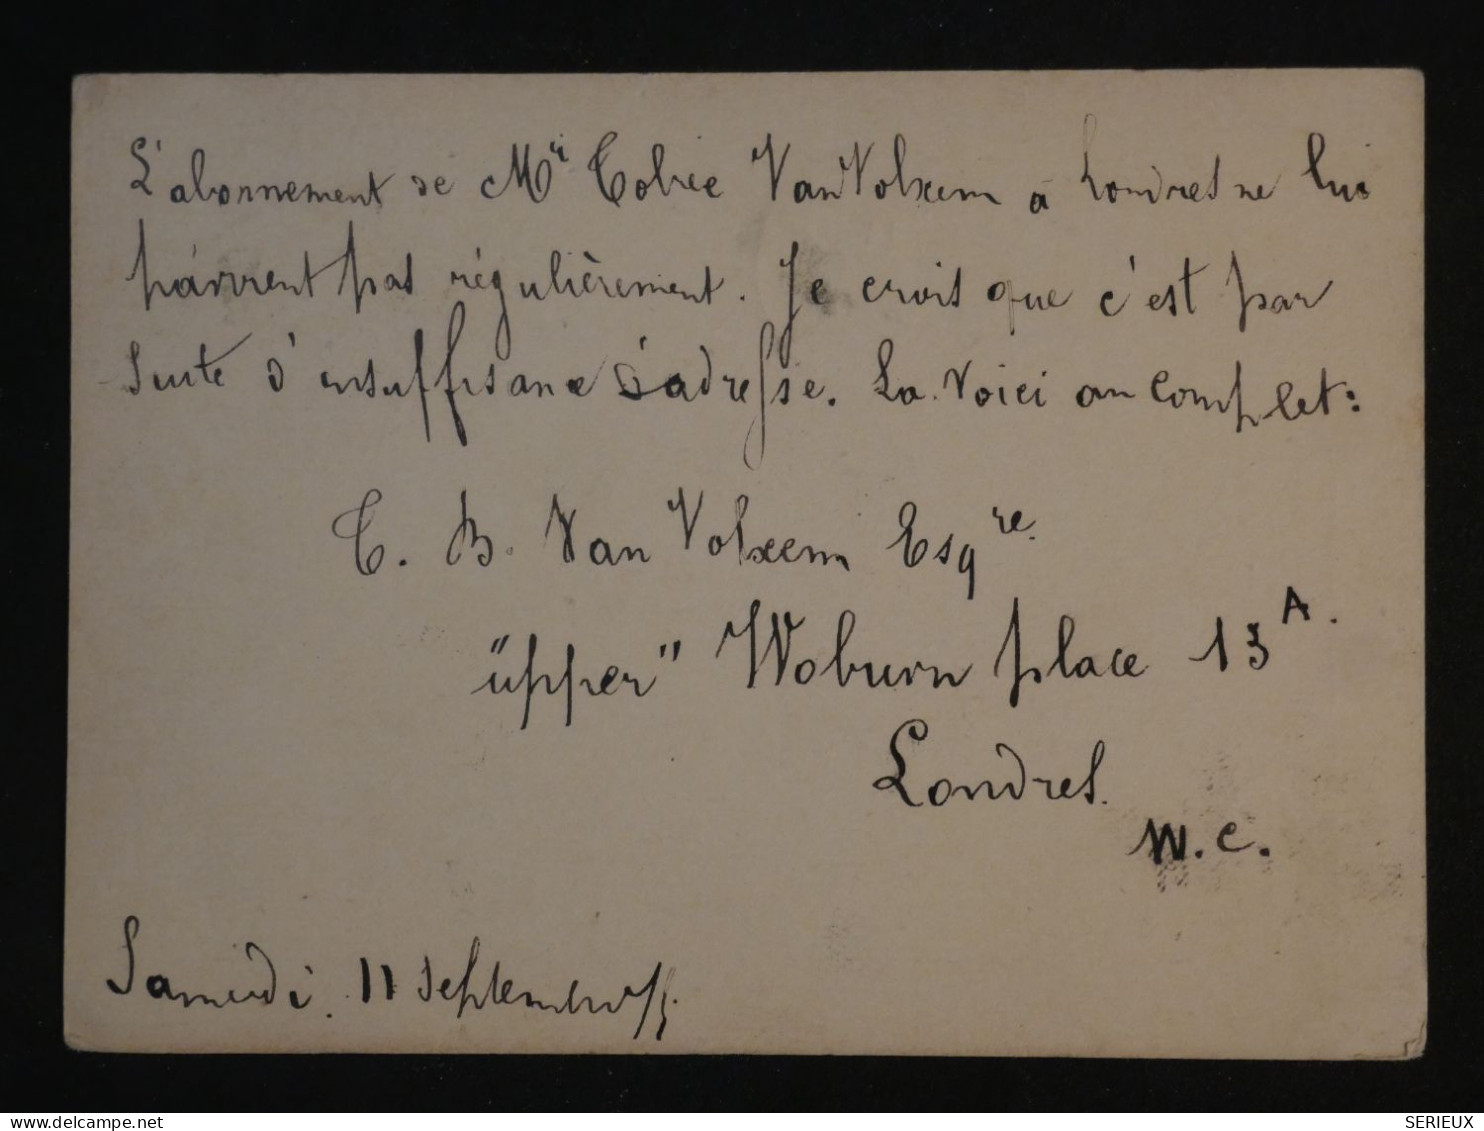 L'abonnement de Mr Tobie Van Volxem à Londres ne lui
parvient pas régulièrement. Je crois que c'est par
suite d'insuffisance d'adresse. La voici au complet:
T. B. Van Volxem Esqre.
"upper" Woburn place 13A.
Londres.
W.C.
Samedi 11 Septembre
delcampe.net
SERIEUX